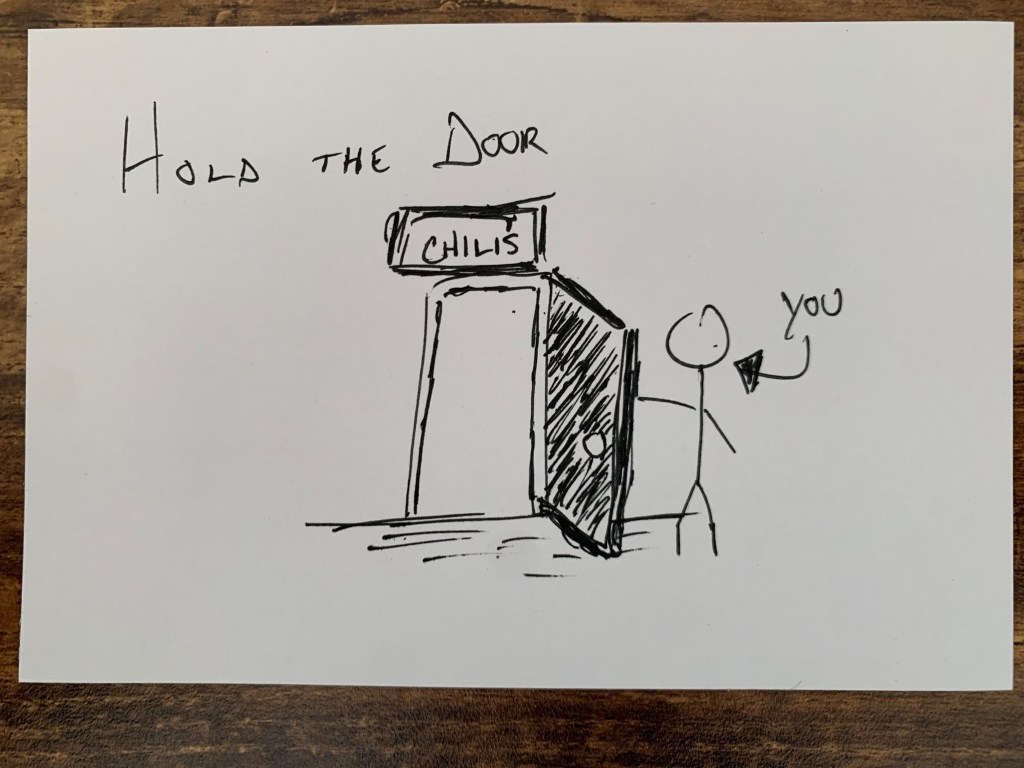 HOLD THE DOOR
CHILIS
YOU